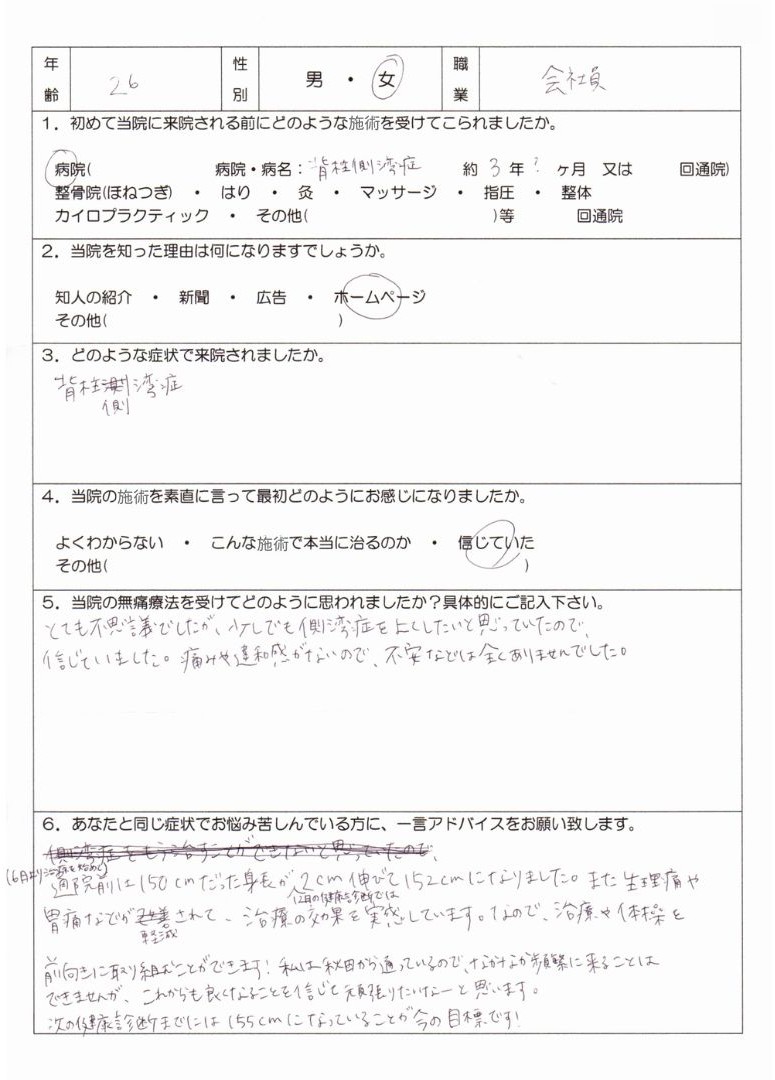 年齢 26 性別 男 ・ 女 職業 会社員
1．初めて当院に来院される前にどのような施術を受けてこられましたか。
病院( 病院・病名：脊柱側湾症 約 3 年 ? ヶ月 又は 回通院)
整骨院(ほねつぎ) ・ はり ・ 灸 ・ マッサージ ・ 指圧 ・ 整体
カイロプラクティック ・ その他( )等 回通院
2．当院を知った理由は何になりますでしょうか。
知人の紹介 ・ 新聞 ・ 広告 ・ ホームページ
その他( )
3．どのような症状で来院されましたか。
脊柱湾症
側
4．当院の施術を素直に言って最初どのようにお感じになりましたか。
よくわからない ・ こんな施術で本当に治るのか ・ 信じていた
その他( )
5．当院の無痛療法を受けてどのように思われましたか？具体的にご記入下さい。
とても不思議でしたが、少しでも側湾症を良くしたいと思っていたので、
信じていました。痛みや違和感がないので、不安などは全くありませんでした。
6．あなたと同じ症状でお悩み苦しんでいる方に、一言アドバイスをお願い致します。
側湾症をもう治すことができないと思っていたので、
(6月より治療を始めて)
通院前は150cmだった身長が2cm伸びて152cmになりました。また生理痛や
12月の健康診断では
胃痛などが改善されて、治療の効果を実感しています。なので、治療や体操を
軽減
前向きに取り組むことができます！私は秋田から通っているので、なかなか頻繁に来ることは
できませんが、これからも良くなることを信じて頑張りたいなーと思います。
次の健康診断までには155cmになっていることが今の目標です！